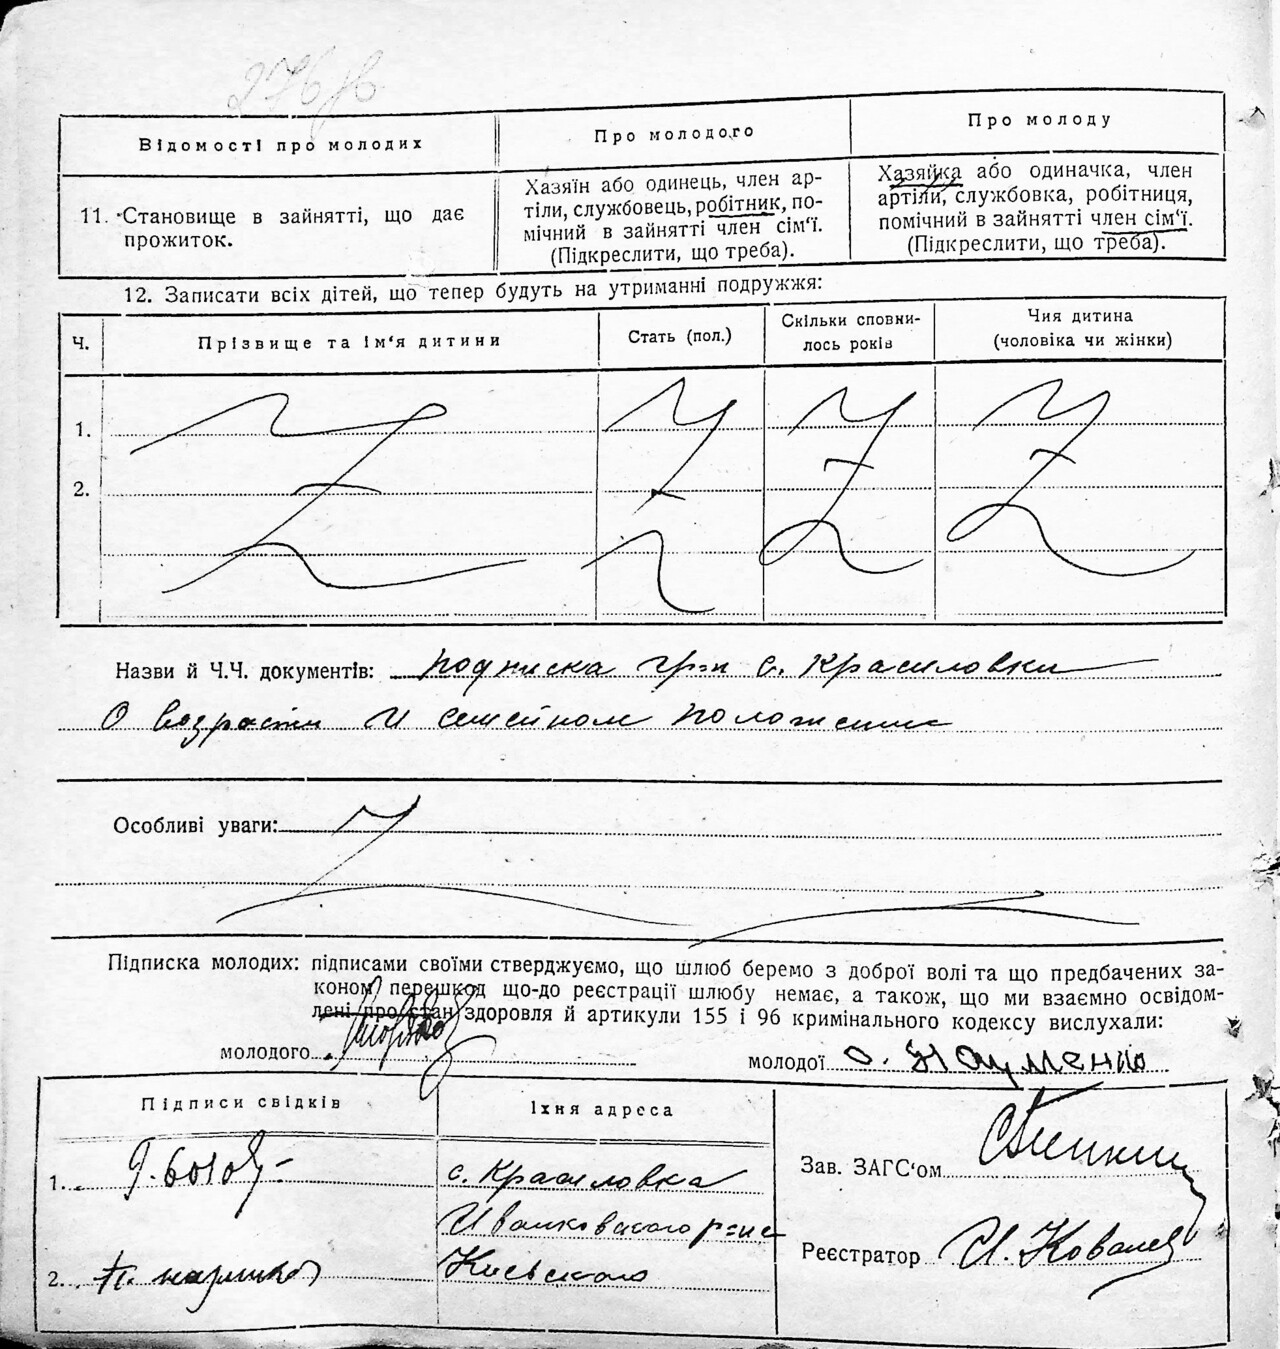 276 зв
Відомості про молодих
Про молодого
Про молоду
11. Становище в зайнятті, що дає
прожиток.
Хазяїн або одинець, член ар-
тіли, службовець, робітник, по-
мічний в зайнятті член сім'ї.
(Підкреслити, що треба).
Хазяйка або одиначка, член
артіли, службовка, робітниця,
помічний в зайнятті член сім'ї.
(Підкреслити, що треба).
12. Записати всіх дітей, що тепер будуть на утриманні подружжя:
Ч.
Прізвище та ім'я дитини
Стать (пол.)
Скільки сповни-
лось років
Чия дитина
(чоловіка чи жінки)
1.
2.
Назви й Ч.Ч. документів: подписка гр-н с. Красиловки
О возрасти и семейном положении
Особливі уваги:
Підписка молодих: підписами своїми стверджуємо, що шлюб беремо з доброї волі та що предбачених за-
коном перешкод що-до реєстрації шлюбу немає, а також, що ми взаємно освідом-
лені про стан здоровля й артикули 155 і 96 кримінального кодексу вислухали:
молодого
молодої О. Науменко
Підписи свідків
Їхня адреса
1.
с. Красиловка
Иванковского р-на
2.
Киевского
Зав. ЗАГС'ом
Реєстратор И. Ковалев